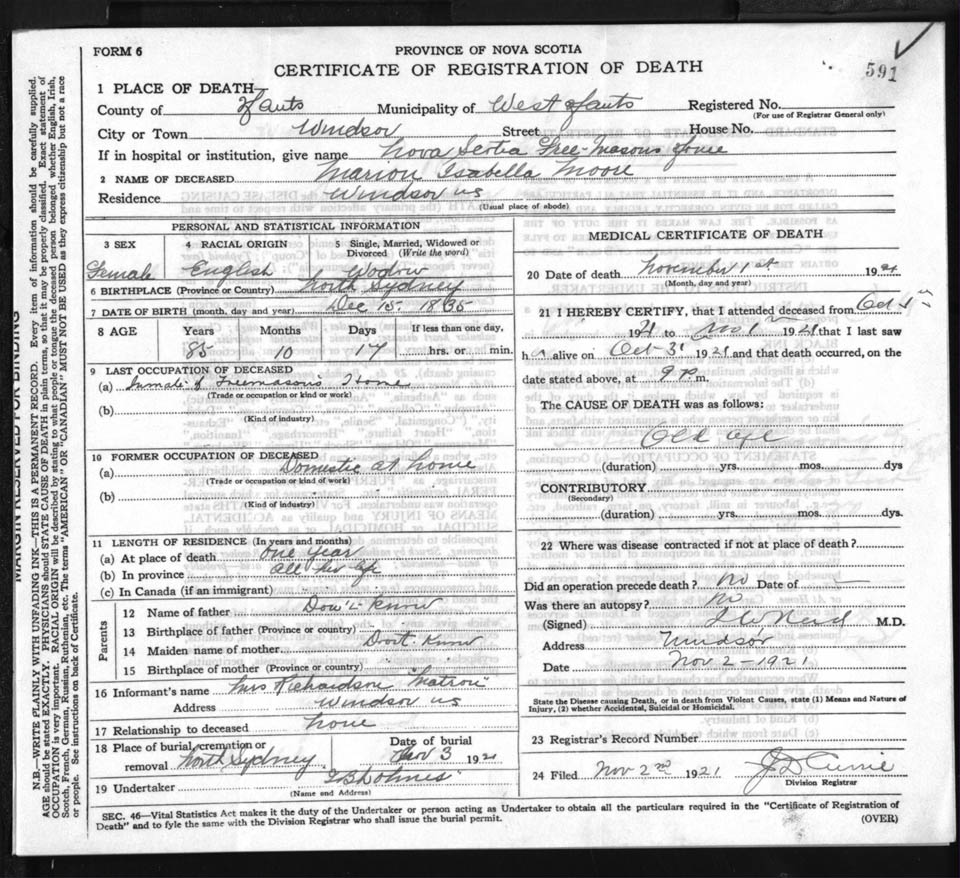 FORM 6
PROVINCE OF NOVA SCOTIA
CERTIFICATE OF REGISTRATION OF DEATH
591
1 PLACE OF DEATH
County of Hants Municipality of West Hants Registered No.
(For use of Registrar General only)
City or Town Windsor Street House No.
If in hospital or institution, give name Nova Scotia Free-Masons Home
2 NAME OF DECEASED Marion Isabella Moore
Residence Windsor NS
(Usual place of abode)
PERSONAL AND STATISTICAL INFORMATION
3 SEX 4 RACIAL ORIGIN 5 Single, Married, Widowed or Divorced (Write the word)
Female English Widow
6 BIRTHPLACE (Province or Country) North Sydney
7 DATE OF BIRTH (month, day and year) Dec 15 - 1835
8 AGE Years Months Days If less than one day,
85 10 17 hrs. or min.
9 LAST OCCUPATION OF DECEASED
(a) Inmate of Freemason's Home
(Trade or occupation or kind or work)
(b)
(Kind of industry)
10 FORMER OCCUPATION OF DECEASED
(a) Domestic at home
(Trade or occupation or kind of work)
(b)
(Kind of industry)
11 LENGTH OF RESIDENCE (In years and months)
(a) At place of death one year
(b) In province all her life
(c) In Canada (if an immigrant)
Parents
12 Name of father Don't know
13 Birthplace of father (Province or country)
14 Maiden name of mother Don't know
15 Birthplace of mother (Province or country)
16 Informant's name Mrs Richardson "Matron"
Address Windsor NS
17 Relationship to deceased none
18 Place of burial, cremation or removal North Sydney Date of burial Nov 3 1921
19 Undertaker
(Name end Address)
MEDICAL CERTIFICATE OF DEATH
20 Date of death November 1st 1921
(Month, day and year)
21 I HEREBY CERTIFY, that I attended deceased from Oct 1st
1921 to Nov 1 1921 that I last saw
h alive on Oct 31 1921 and that death occurred, on the
date stated above, at 9 p.m.
The CAUSE OF DEATH was as follows:
Old age
(duration) yrs. mos. dys
CONTRIBUTORY
(Secondary)
(duration) yrs. mos. dys
22 Where was disease contracted if not at place of death?
Did an operation precede death? No Date of —
Was there an autopsy? No
(Signed) M.D.
Address Windsor
Date Nov 2 - 1921
State the Disease causing Death, or in death from Violent Causes, state (1) Means and Nature of Injury, (2) whether Accidental, Suicidal or Homicidal.
23 Registrar's Record Number
24 Filed Nov 2nd 1921 Currie
Division Registrar
SEC. 46—Vital Statistics Act makes it the duty of the Undertaker or person acting as Undertaker to obtain all the particulars required in the "Certificate of Registration of
Death" and to fyle the same with the Division Registrar who shall issue the burial permit.
(OVER)
MARGIN RESERVED FOR BINDING
N.B.—WRITE PLAINLY WITH UNFADING INK—THIS IS A PERMANENT RECORD. Every item of information should be carefully supplied.
AGE should be stated EXACTLY. PHYSICIANS should STATE CAUSE OF DEATH in plain terms, so that it may be properly classified. Exact statement of
OCCUPATION is very important. RACIAL ORIGIN will be described by stating to what people or tongue the deceased person belonged whether English, Irish,
Scotch, French, German, Russian, Ruthenian, etc. The terms "AMERICAN" OR "CANADIAN" MUST NOT BE USED as they express citizenship but not a race
or people. See instructions on back of Certificate.